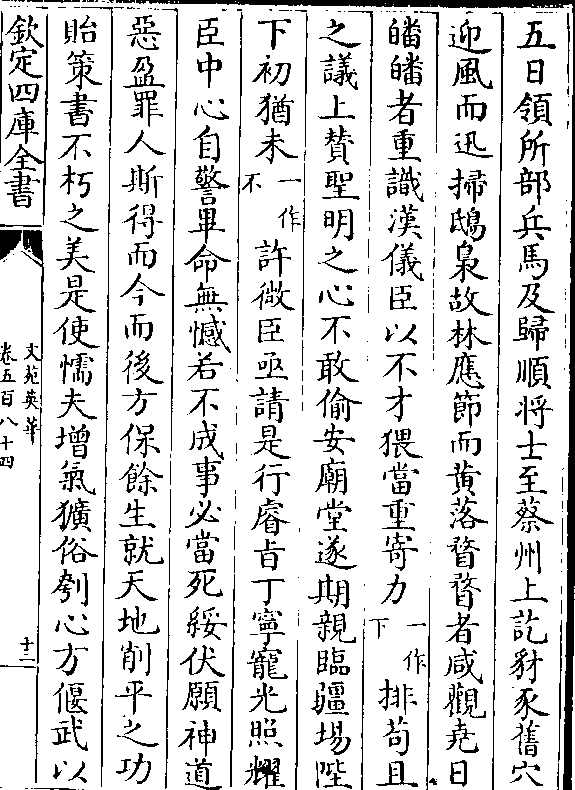 五日領所部兵馬及歸順将士至蔡州上訖豺豕舊穴
迎風而迅掃鴟梟故林應節而黄落瞀瞀者咸觀堯日
皤皤者重識漢儀臣以不才猥當重寄力一作下排苟且
之議上賛聖明之心不敢偷安廟堂遂期親臨疆場陛
下初猶未一作不許微臣亟請是行睿㫖丁寧寵光照耀
臣中心自警畢命無憾若不成事必當死綏伏願神道
惡盈罪人斯得而今而後方保餘生就天地削平之功
貽策書不朽之美是使懦夫增氣獷俗刳心方偃武以
欽定四庫全書
文苑英華
卷五百八十四
十二